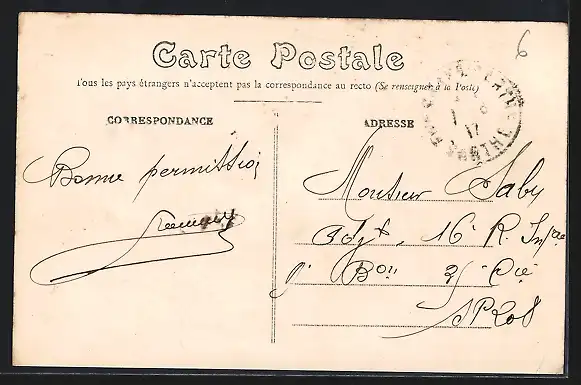 6
Carte Postale
Tous les pays étrangers n'acceptent pas la correspondance au recto (Se renseigner à la Poste)
CORRESPONDANCE
ADRESSE
17
SARTHE
Bonne permission
Monsieur Saby
Adjt. 16e R. Infie
Bon 3e Cie
SP 208